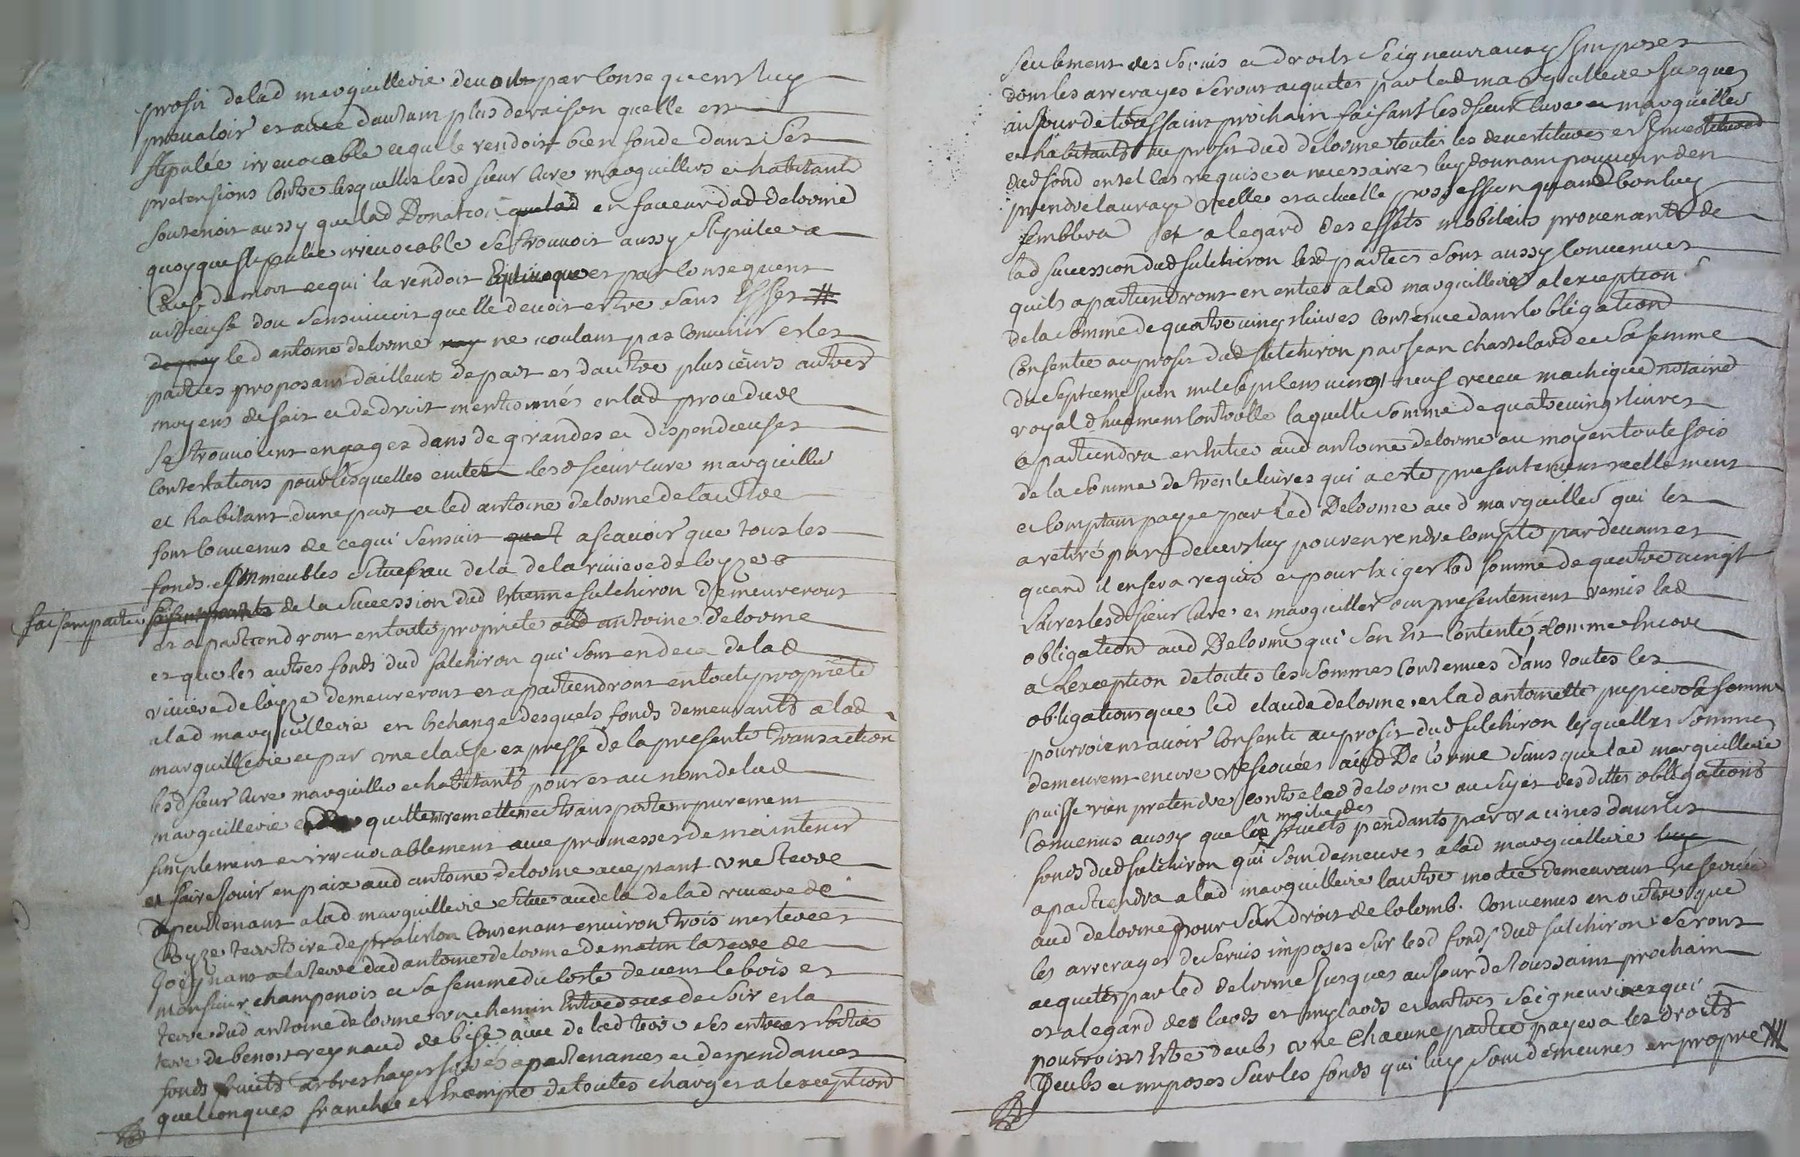 profit delad marguillerie devoit par consequent luy
prevaloir et avec dautant plus de raison quelle est
stipulée irrevocable ce qui le rendoit bien fondé dans ses
pretensions contre lesquelles lesd sieur curé marguilliers et habitants
soutenoit aussy que lad Donation quelad en faveur dud delorme
quoyque stipulée irrevocable se trouvoit aussy stipulée a
Cause de mort ce qui la rendoit Equivoque et par consequent
vitieuse dou sensuivoit quelle devoit estre sans Effet #
dequoy led antoine delorme ne voulant pas convenir et les
parties proposant dailleurs de part et dautre plusieurs autres
moyens de fait et de droit mentionnés en lad procedure
se trouvoient engagez dans de grandes et dispendieuses
contestations pour lesquelles eviter lesd sieur curé marguillier
et habitant dune part et led antoine delorme de lautre
sont convenus de ce qui sensuit quet a scavoir que tous les
fonds et Immeubles situés au dela de la riviere deloyze
faisant partie de la succession dud Etienne falchiron demeureront
et apartiendront en toute propriete aud antoine delorme
et que les autres fonds dud falchiron qui sont en deca de lad
riviere deloyze demeureront et apartiendront en toute propriété
alad marguillerie en Echange desquels fonds demeurants a lad
marguillerie et par une clause expresse de la presente transaction
lesd sieur curé marguillier et habitants pour et au nom de lad
marguillerie quittent remettent et transportent purement
simplement et irrevocablement avec promesses de maintenir
et faire jouir en paix aud antoine delorme acceptant une terre
apartenant a lad marguillerie situé au dela de lad riviere de
Loyze territoire de contenant environ trois mesterées
Joignant a la terre dud antoine delorme de matin la terre de
monsieur champenois et sa femme du costé de vent le bois et
terre dud antoine delorme un chemin Entredeux de soir et la
terre de benoit reynaud de bise avec de lad terre ses entrées sortie
fonds fruits arbres hayes apartenances et dependances
quelconques franche et Exempte de toutes charges a lexception
seulement des servis et droits seigneuriaux Imposés
dont les arrerages seront acquités par lad marguillerie jusques
au jour de toussaint prochain faisant lesd sieur curé et marguillier
et habitants au profit dud delorme toutes les devestitures et Investitures
dud fond en tel cas requise et necessaires luy donnant pouvoir den
prendre la vraye reelle et actuelle possession quand bon luy
semblera et a legard des effets mobiliers provenants de
lad succession dud falchiron lesd parties sont aussy convenues
quils apartiendront en entier a lad marguillerie a lexception
de la somme de quatre vingt livres contenue dans lobligation
Consentie au profit dud falchiron par jean chastelard et sa femme
du septieme juin mil sept cens vingt neuf receu machigued notaire
royal dhuement controlle laquelle somme de quatre vingt livres
apartiendra en Entier aud antoine delorme au moyen toute fois
de la somme de trente livres qui a esté presentement reellement
et comptant payée par led Delorme aud marguillier qui les
a retiré par devers luy pour en rendre compte par devant et
quand il en sera requis et pour Exiger lad somme de quatre vingt
Livres lesd sieur curé et marguillier ont presentement remis lad
obligation aud Delorme qui sen Est contenté, Comme Encore
a Lexception de toutes les sommes contenues dans toutes les
obligations que led claude delorme et lad antoinette sa femme
pourroient avoir consenti au profit dud falchiron lesquelles sommes
demeurent encore reservées aud De lorme sans que lad marguillerie
puisse rien pretendre contre led delorme au sujet desdittes obligations
Convenus aussy que la moitié des fruits pendants par racines dans les
fonds dud falchiron qui sont demeurés a lad marguillerie luy
apartiendra a lad marguillerie lautre moitié demeurant reservée
aud delorme pour son droit de colomb. Convenus en outre que
les arrerages des servis imposés sur lesd fonds dud falchiron seront
acquités par led delorme jusques au jour de Toussaint prochain
et a legard des laods et mylaods et autres seigneurie qui
pourroient Estre deubs une Chacune partie payera les droits
Deubs et imposés sur les fonds qui luy sont demeurés en propre